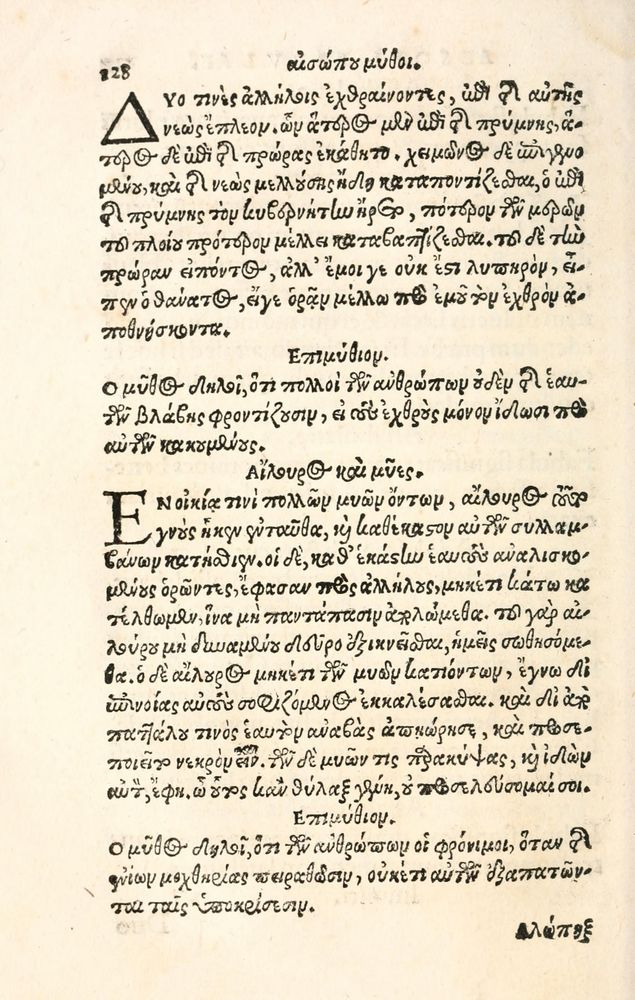 128
αἰσώπου μῦθοι.
ΔΥΟ τινὲς ἀλλήλοις ἐχθραίνοντες, ἐπὶ τῆς αὐτῆς
νεὼς ἔπλεον. ὧν ἅτερος μὲν ἐπὶ τῆς πρύμνης, ἅ-
τερος δὲ ἐπὶ τῆς πρώρας ἐκάθητο. χειμῶνος δὲ ἐπιγενο
μένου, καὶ τῆς νεὼς μελλούσης ἤδη καταποντίζεσθαι, ὁ ἐπὶ
τῆς πρύμνης τὸν κυβερνήτην ἤρετο, πότερον τῶν μερῶν
τοῦ πλοίου πρότερον μέλλει καταβαπτίζεσθαι. τοῦ δὲ τὴν
πρώραν εἰπόντος, ἀλλ' ἔμοι γε οὐκ ἔστι λυπηρὸν, εἶ-
πεν ὁ θάνατος, εἴγε ὁρᾷν μέλλω πρὸ ἐμοῦ τὸν ἐχθρὸν ἀ-
ποθνήσκοντα.
Επιμύθιον.
Ο μῦθος δηλοῖ, ὅτι πολλοὶ τῶν ἀνθρώπων οὐδὲν τῆς ἑαυ-
τῶν βλάβης φροντίζουσιν, εἰ τοὺς ἐχθροὺς μόνον ἴδωσι πρὸ
αὐτῶν κακουμένους.
Αἴλουρος καὶ μῦες.
ΕΝ οἰκίᾳ τινὶ πολλῶν μυῶν ὄντων, αἴλουρος τοῦτο
γνοὺς ἧκεν ἐνταῦθα, καὶ καθέκαστον αὐτῶν συλλαμ-
βάνων κατήσθιεν. οἱ δὲ, καθ' ἑκάστην ἑαυτοὺς ἀναλισκο-
μένους ὁρῶντες, ἔφασαν πρὸς ἀλλήλους, μηκέτι κάτω κα
τέλθωμεν, ἵνα μὴ παντάπασιν ἀπολώμεθα. τοῦ γὰρ αἰ-
λούρου μὴ δυναμένου δεῦρο ἐξικνεῖσθαι, ἡμεῖς σωθησόμε-
θα. ὁ δὲ αἴλουρος μηκέτι τῶν μυῶν κατιόντων, ἔγνω δι
ἐπινοίας αὐτοὺς σοφιζόμενος ἐκκαλέσασθαι. καὶ δὶ ἀπὸ
παττάλου τινὸς ἑαυτὸν ἀναβὰς ἀπῃώρησε, καὶ προσε-
ποιεῖτο νεκρὸν εἶναι. τῶν δὲ μυῶν τις παρακύψας, καὶ ἰδὼν
αὐτὸν, ἔφη. ὦ οὗτος κἂν θύλαξ γένῃ, οὐ προσελεύσομαί σοι.
Επιμύθιον.
Ο μῦθος δηλοῖ, ὅτι τῶν ἀνθρώπων οἱ φρόνιμοι, ὅταν τῆς
ἐνίων μοχθηρίας πειραθῶσιν, οὐκέτι αὐτῶν ἐξαπατῶν-
ται ταῖς ὑποκρίσεσιν.
Αλώπηξ